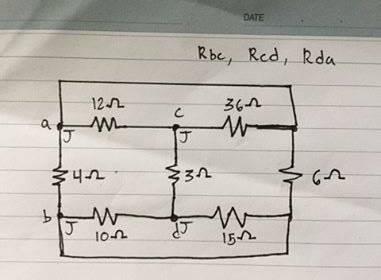 DATE
Rbc, Rcd, Rda
12Ω c 36Ω
a J J
4Ω 3Ω 6Ω
b J d J
10Ω 15Ω